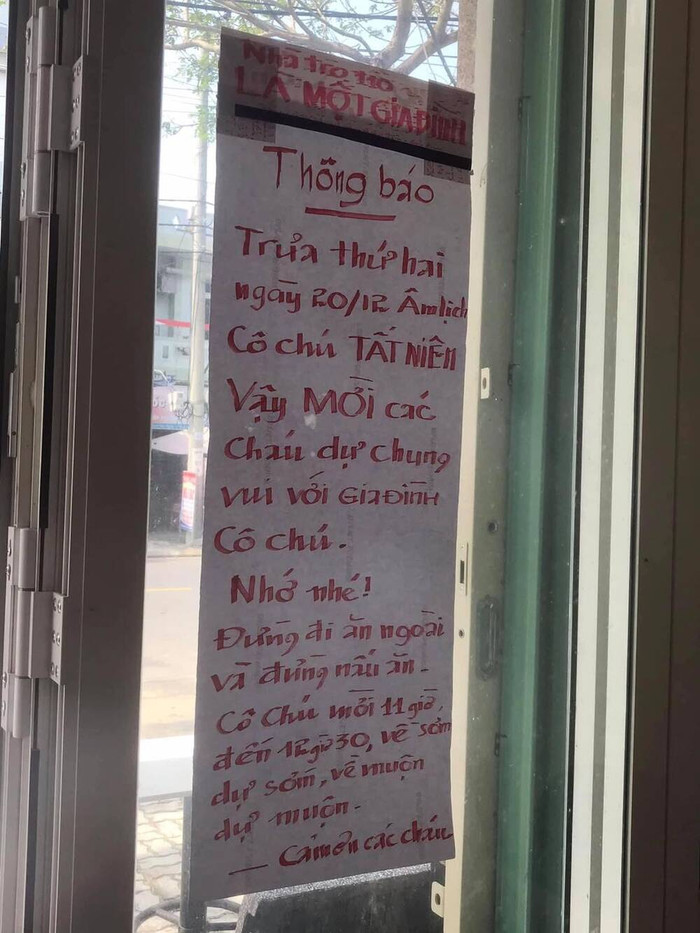 Nhà trọ
LÀ MỘT GIA ĐÌNH
Thông báo
Trưa thứ hai
ngày 20/12 Âm lịch
Cô chú TẤT NIÊN
Vậy MỜI các
Cháu dự chung
vui với GIA ĐÌNH
Cô chú.
Nhớ nhé!
Đừng đi ăn ngoài
và đừng nấu ăn -
Cô Chú mời 11 giờ,
đến 12 giờ 30, về sớm
dự sớm, về muộn
dự muộn.
— Cảm ơn các cháu